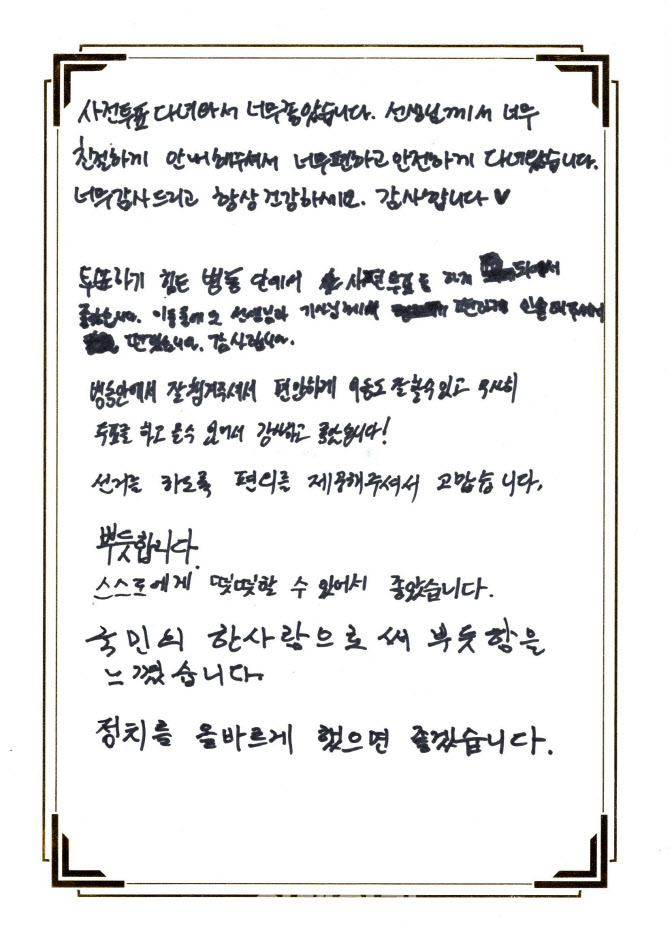 사전투표 다녀와서 너무좋았습니다. 선생님께서 너무
친절하게 안내해주셔서 너무편하고 안전하게 다녀왔습니다.
너무감사드리고 항상 건강하세요. 감사합니다 ♥
투표하기 힘든 병동 안에서 사전투표를 하게 되어서
좋았습니다. 이동 선생님과 기사님께서 편하게 인솔해주셔서
편했습니다. 감사합니다.
병동안에서 잘 챙겨주셔서 편안하게 이동도 잘할수있고 무사히
투표를 하고 올수 있어서 감사하고 좋았습니다!
선거를 하도록 편의를 제공해주셔서 고맙습니다.
뿌듯합니다.
스스로에게 떳떳할 수 있어서 좋았습니다.
국민의 한사람으로써 뿌듯함을
느꼈습니다.
정치를 올바르게 했으면 좋겠습니다.